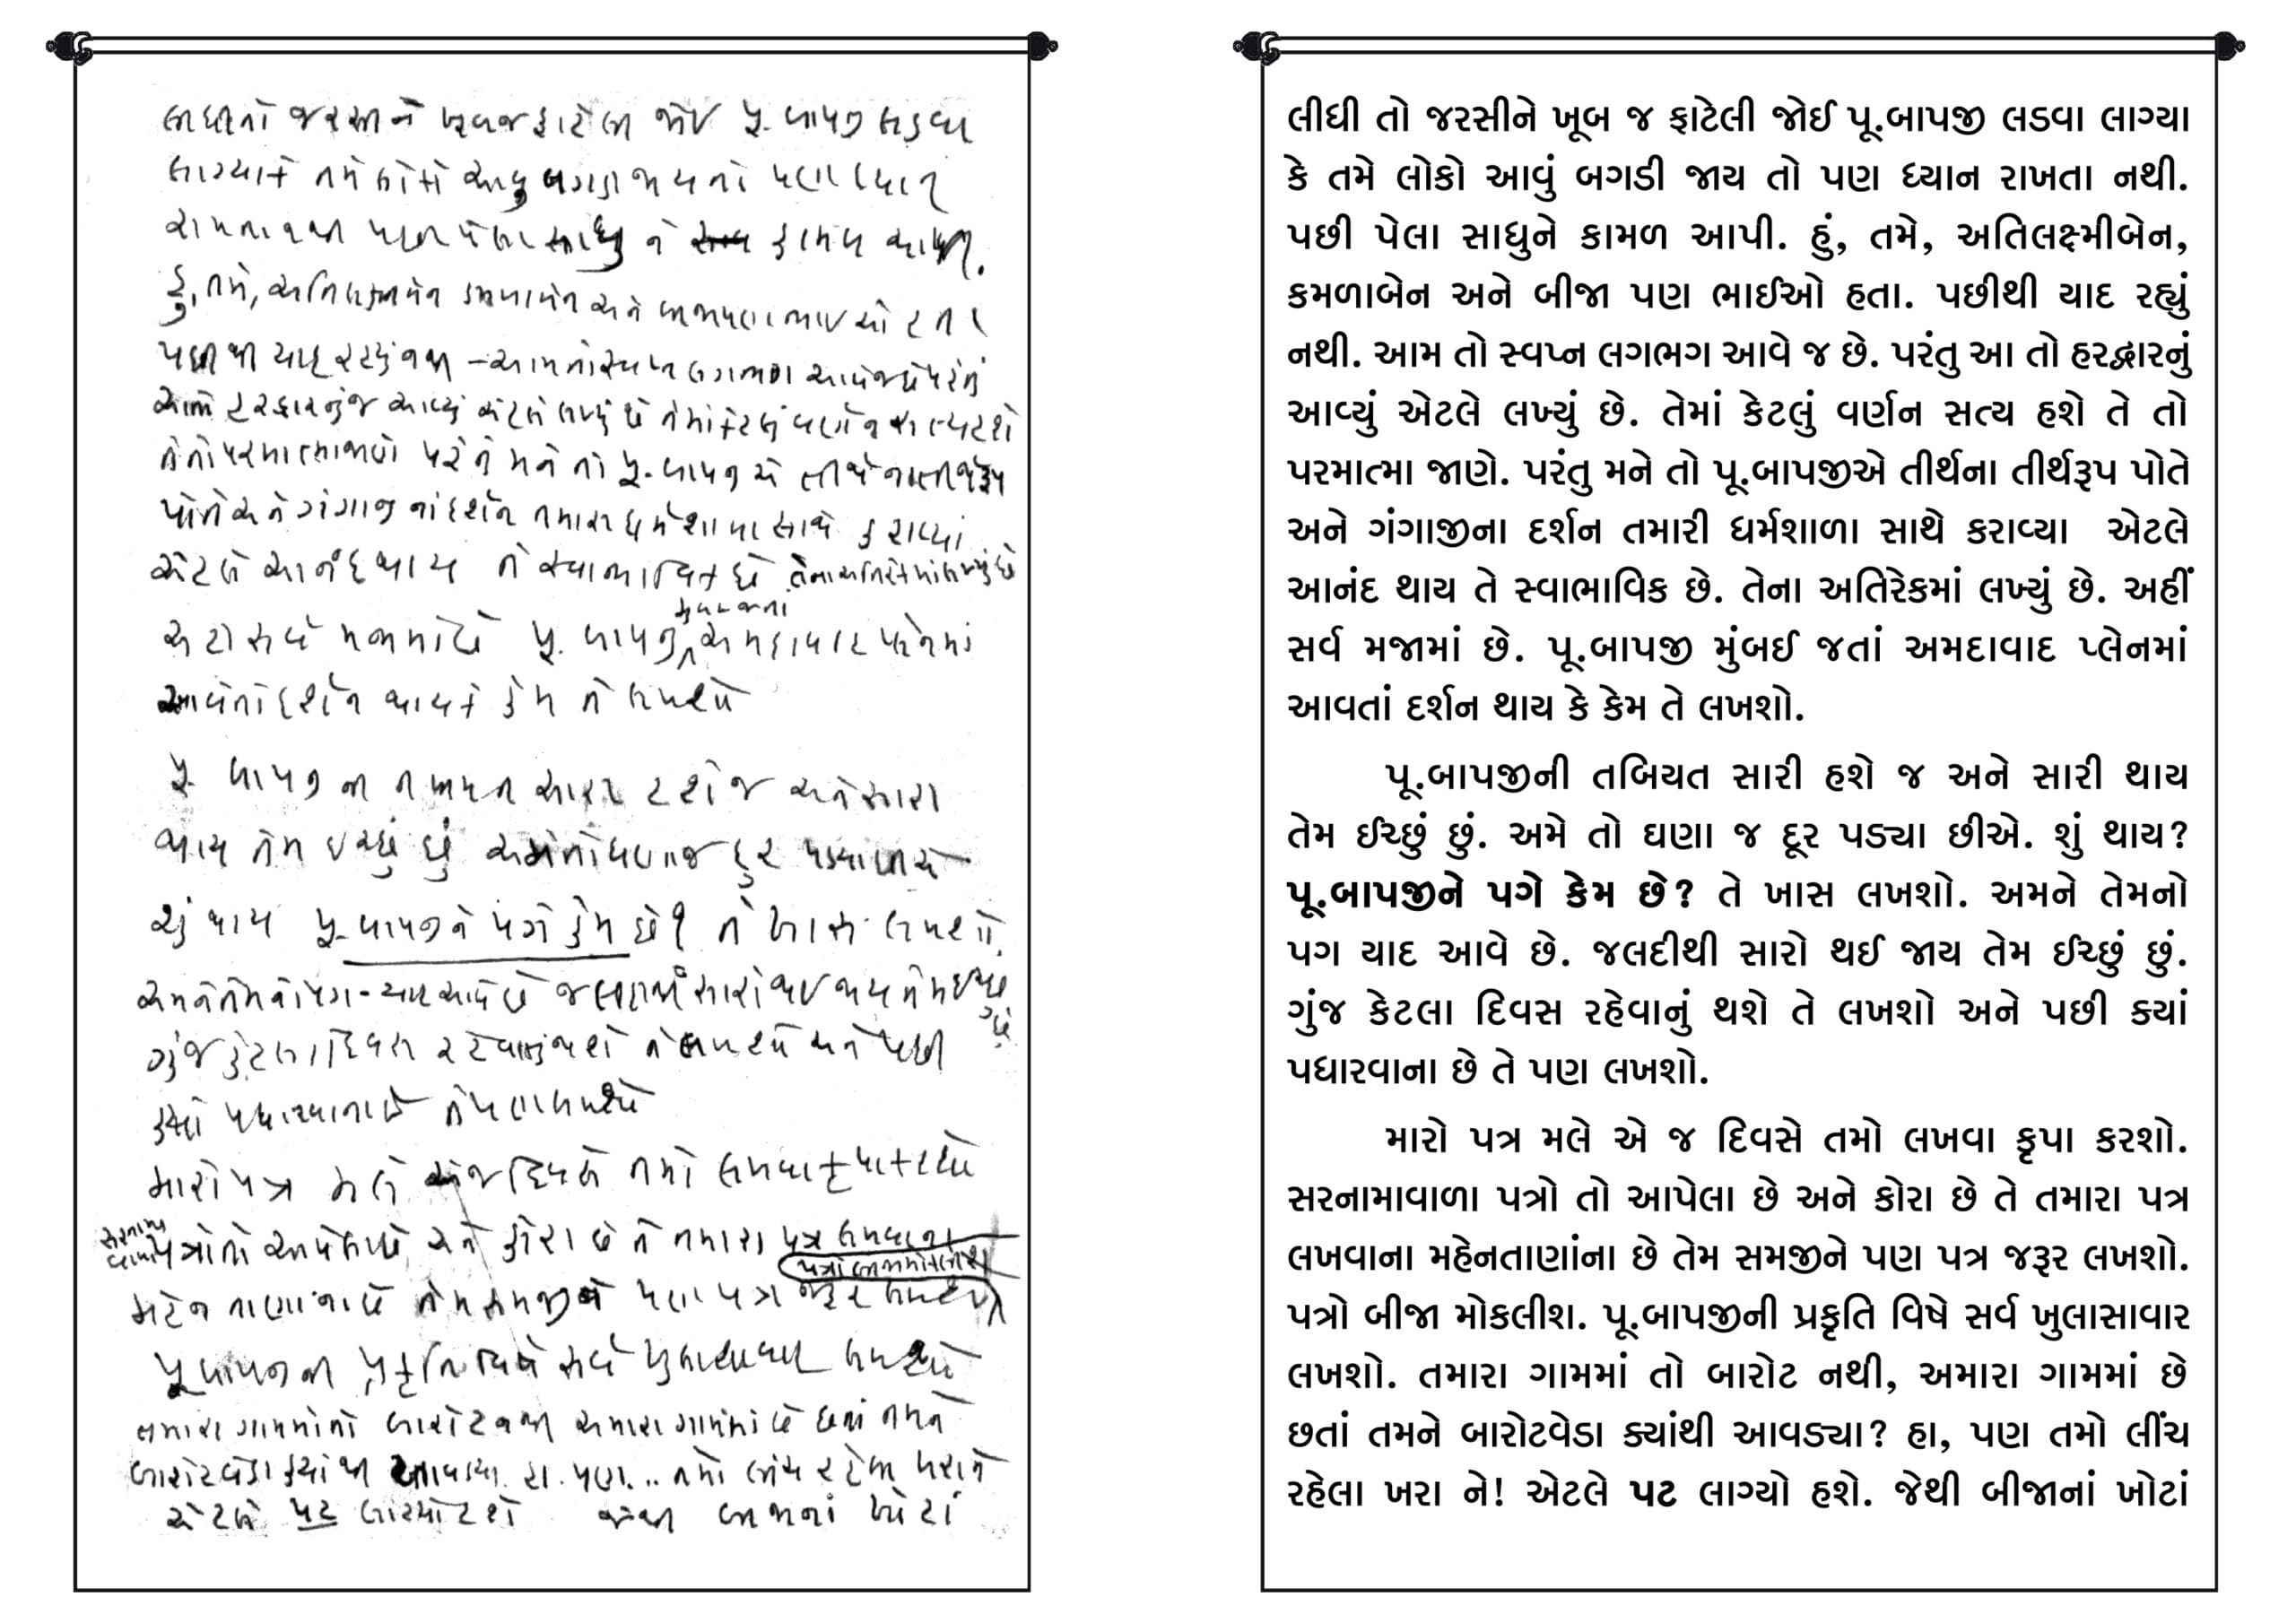 લીધીતો જરસીને ખૂબજ ફાટેલી જોઈ પૂ. બાપજી લડવા
લાગ્યાકે તમે લોકો આવુ બગડી જાયતો પણ ધ્યાન
રાખતા નથી પછી પેલા સાધુ ને કામળ આપી.
હું, તમે, અતિલક્ષ્મીબેન કમળાબેન અને બીજાપણ ભાઈઓ હતા
પછીથી યાદ રહ્યું નથી – આમતો સ્વપ્ન લગભગ આવેજછે પરંતું
આતો હરદ્વારનુંજ આવ્યું એટલે લખ્યું છે તેમાં કેટલું વર્ણન સત્યહશે
તેતો પરમાત્મા જાણે પરંતુ મને તો પૂ. બાપજીએ તીર્થના તીર્થરૂપ
પોતે અને ગંગાજીનાં દર્શન તમારી ધર્મશાળા સાથે કરાવ્યાં
એટલે આનંદ થાય તે સ્વાભાવિક છે તેના અતિરેકમાં લખ્યું છે
અહી સર્વે મજામાંછે પૂ. બાપજી મુંબઈ જતાં અમદાવાદ પ્લેનમાં
આવેતો દર્શન થાયકે કેમ તે લખશો
પૂ. બાપજીની તબીયત સારી હશેજ અને સારી
થાય તેમ ઈચ્છું છું અમેતો ઘણાજ દુર પડ્યાછીએ
શું થાય પૂ. બાપજીને પગે કેમ છે? તે ખાસ લખશો.
અમને તેમનો પગ - યાદ આવેછે જલદીથી સારો થઈ જાય તેમ ઈચ્છુ
છું
ગુંજ કેટલા દિવસ રહેવાનું થશે તે લખશો અને પછી
ક્યાં પધારવાનાછે તે પણ લખશો
મારો પત્ર મલે એજ દિવસે તમો લખવા કૃપા કરશો
સરનામા વાળા પત્રોતો આપેલાછે અને કોરા છે તે તમારા પત્ર લખવાના
પત્રો બીજા મોકલીશ
મહેનતાણાંનાછે તેમ સમજીને પણ પત્ર જરૂર લખશો
પૂ બાપજીની પ્રકૃતિ વિષે સર્વે ખુલાસાવાર લખશો
તમારા ગામમાંતો બારોટ નથી અમારા ગામમાં છે છતાં તમને
બારોટવેડા ક્યાંથી આવડ્યા. હા. પણ.. તમો લીંચ રહેલા ખરાને
એટલે પટ લાગ્યો હશે જેથી બીજાનાં ખોટાં
લીધી તો જરસીને ખૂબ જ ફાટેલી જોઈ પૂ.બાપજી લડવા લાગ્યા
કે તમે લોકો આવું બગડી જાય તો પણ ધ્યાન રાખતા નથી.
પછી પેલા સાધુને કામળ આપી. હું, તમે, અતિલક્ષ્મીબેન,
કમળાબેન અને બીજા પણ ભાઈઓ હતા. પછીથી યાદ રહ્યું
નથી. આમ તો સ્વપ્ન લગભગ આવે જ છે. પરંતુ આ તો હરદ્વારનું
આવ્યું એટલે લખ્યું છે. તેમાં કેટલું વર્ણન સત્ય હશે તે તો
પરમાત્મા જાણે. પરંતુ મને તો પૂ.બાપજીએ તીર્થના તીર્થરૂપ પોતે
અને ગંગાજીના દર્શન તમારી ધર્મશાળા સાથે કરાવ્યા એટલે
આનંદ થાય તે સ્વાભાવિક છે. તેના અતિરેકમાં લખ્યું છે. અહીં
સર્વ મજામાં છે. પૂ.બાપજી મુંબઈ જતાં અમદાવાદ પ્લેનમાં
આવતાં દર્શન થાય કે કેમ તે લખશો.
પૂ.બાપજીની તબિયત સારી હશે જ અને સારી થાય
તેમ ઈચ્છું છું. અમે તો ઘણા જ દૂર પડ્યા છીએ. શું થાય?
પૂ.બાપજીને પગે કેમ છે? તે ખાસ લખશો. અમને તેમનો
પગ યાદ આવે છે. જલદીથી સારો થઈ જાય તેમ ઈચ્છું છું.
ગુંજ કેટલા દિવસ રહેવાનું થશે તે લખશો અને પછી ક્યાં
પધારવાના છે તે પણ લખશો.
મારો પત્ર મલે એ જ દિવસે તમો લખવા કૃપા કરશો.
સરનામાવાળા પત્રો તો આપેલા છે અને કોરા છે તે તમારા પત્ર
લખવાના મહેનતાણાંના છે તેમ સમજીને પણ પત્ર જરૂર લખશો.
પત્રો બીજા મોકલીશ. પૂ.બાપજીની પ્રકૃતિ વિષે સર્વ ખુલાસાવાર
લખશો. તમારા ગામમાં તો બારોટ નથી, અમારા ગામમાં છે
છતાં તમને બારોટવેડા ક્યાંથી આવડ્યા? હા, પણ તમો લીંચ
રહેલા ખરા ને! એટલે પટ લાગ્યો હશે. જેથી બીજાનાં ખોટાં